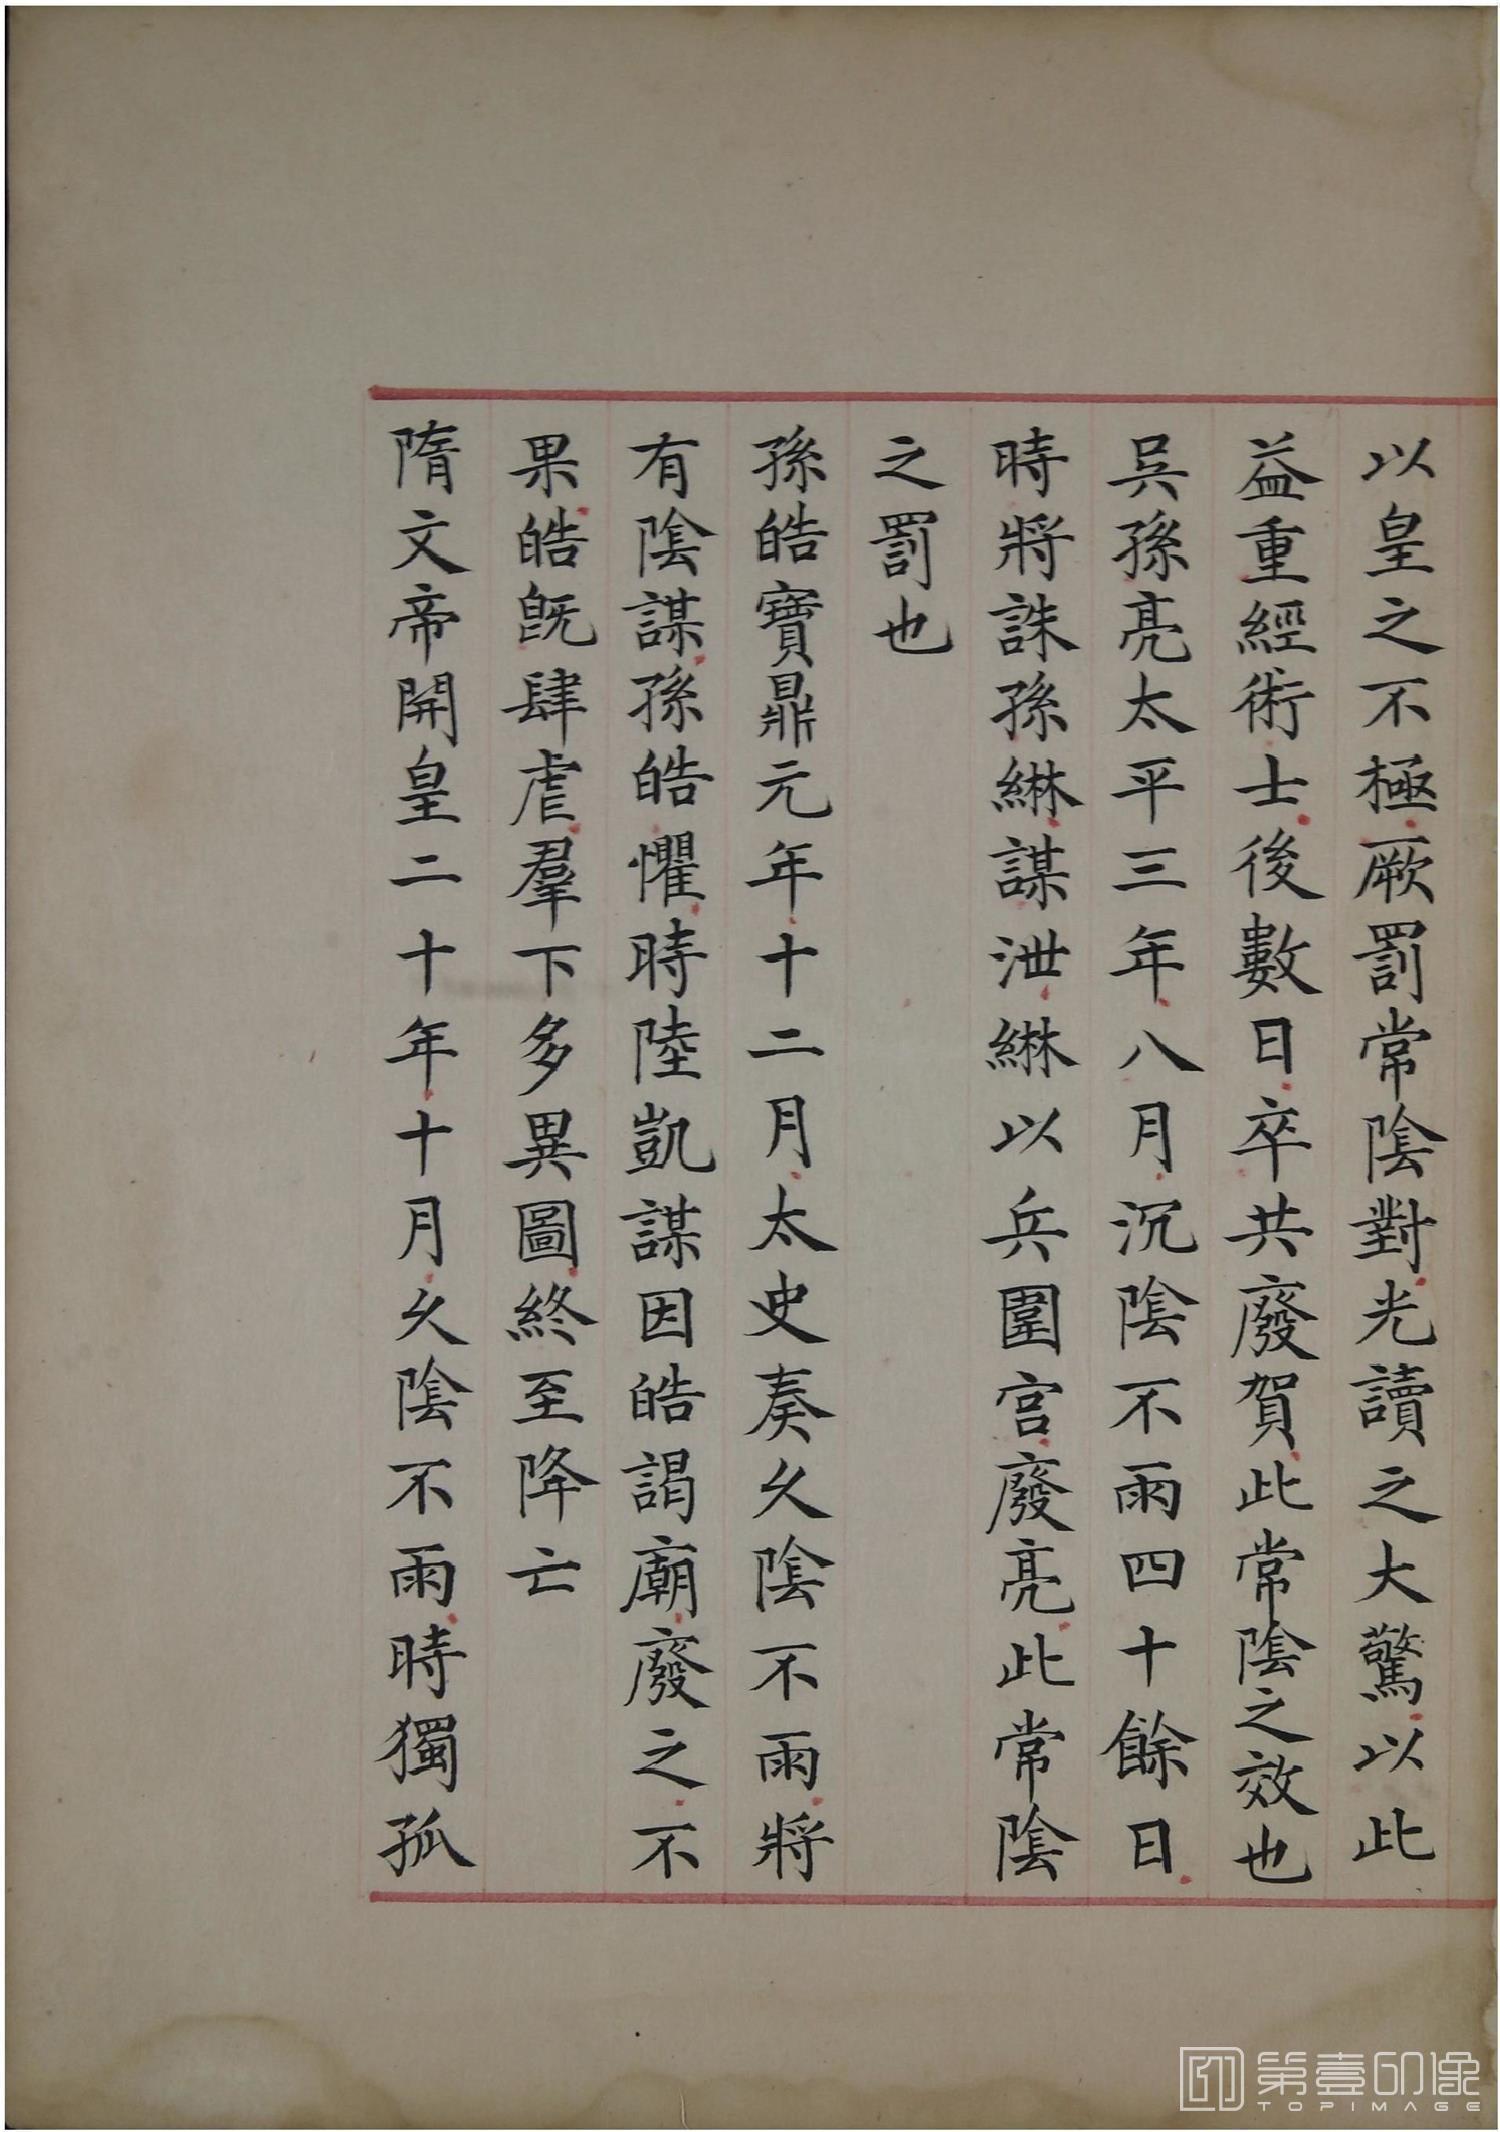 以皇之不極厥罰常陰對光讀之大驚以此
益重經術士後數日卒共廢賀此常陰之效也
吳孫亮太平三年八月沉陰不雨四十餘日
時將誅孫綝謀泄綝以兵圍宮廢亮此常陰
之罰也
孫皓寶鼎元年十二月太史奏久陰不雨將
有陰謀孫皓懼時陸凱謀因皓謁廟廢之不
果皓旣肆虐羣下多異圖終至降亡
隋文帝開皇二十年十月久陰不雨時獨孤
第壹印像
TOPIMAGE